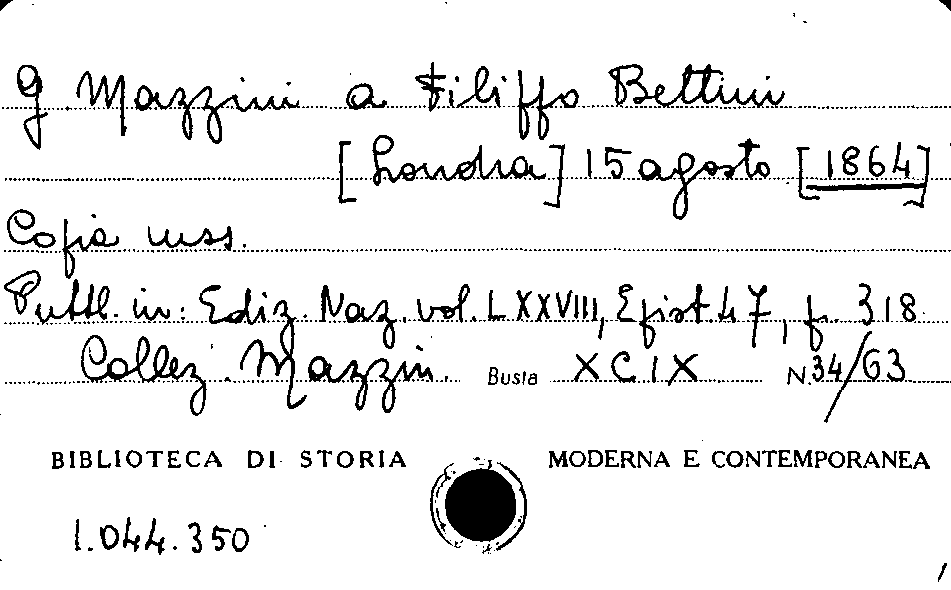 G. Mazzini a Filippo Bettini
[Londra] 15 agosto [1864]
Copia mss.
Pubbl. in: Ediz. Naz. vol. LXXVIII, Epist. 47, p. 318
Collez. Mazzini. Busta XCIX N. 34/63
BIBLIOTECA DI STORIA MODERNA E CONTEMPORANEA
1.044.350